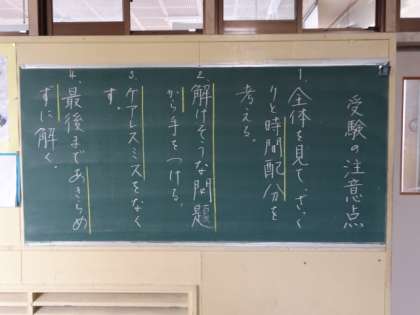 受験の注意点
1. 全体を見て、ざっく
りと時間配分を
考える。
2. 解けそうな問題
から手をつける。
3. ケアレスミスをなく
す。
4. 最後まであきらめ
ずに解く。